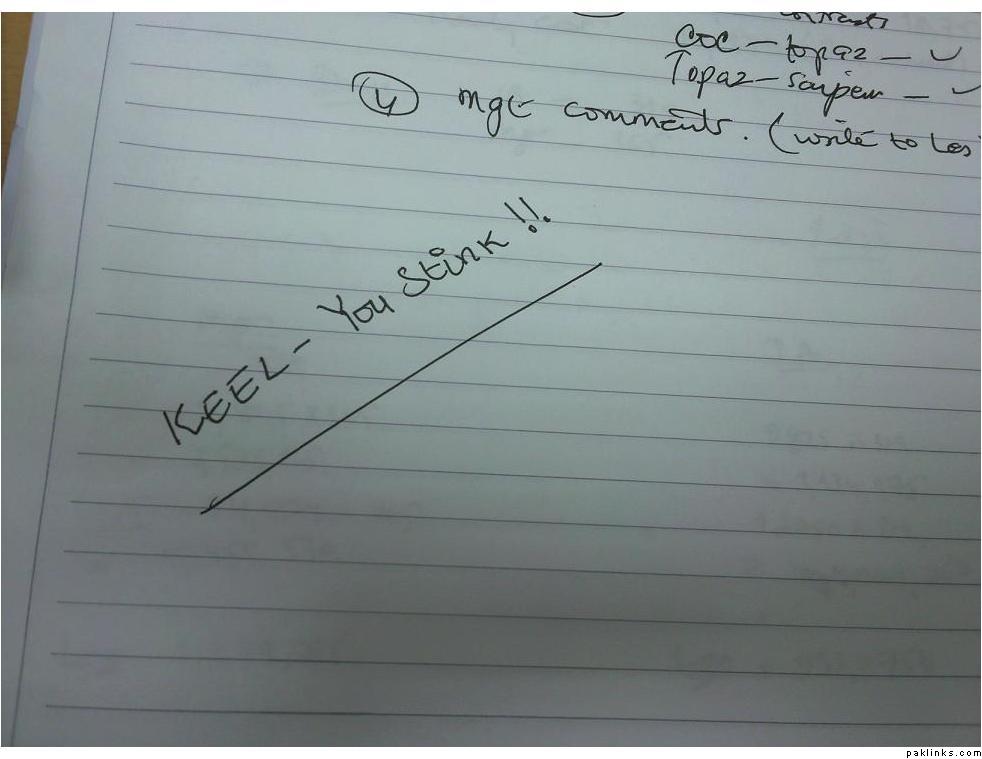 COC - topaz -
Topaz - Saipem -
4 mgt comments. (write to Les
KEEL - You Stink !!.
paklinks.com